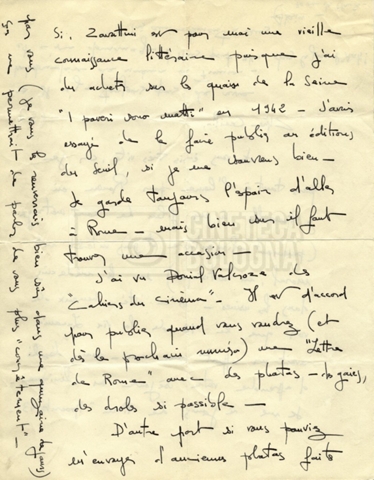 Si. Zavattini est pour moi une vieille
connaissance littéraire puisque j'ai
du acheter sur les quais de la Seine
"I poveri sono matti" en 1942 - J'avais
essayé de le faire publier aux éditions
du Seuil, si je me souviens bien -
Je garde toujours l'espoir d'aller
à Rome - mais bien sûr il faut
trouver une occasion -
J'ai vu Doniol Valcroze des
"Cahiers du Cinéma". Il est d'accord
pour publier quand vous voudrez (et
dès le prochain numéro) une "Lettre
de Rome" avec des photos - de gaies,
des droles si possible -
D'autre part si vous pouviez
m'envoyer d'anciennes photos faites
par vous (je vous les renverrais bien sûr dans une quinzaine de jours)
ça me permettrait de parler de vous plus "concrètement" -
CINETECA
BOLOGNA